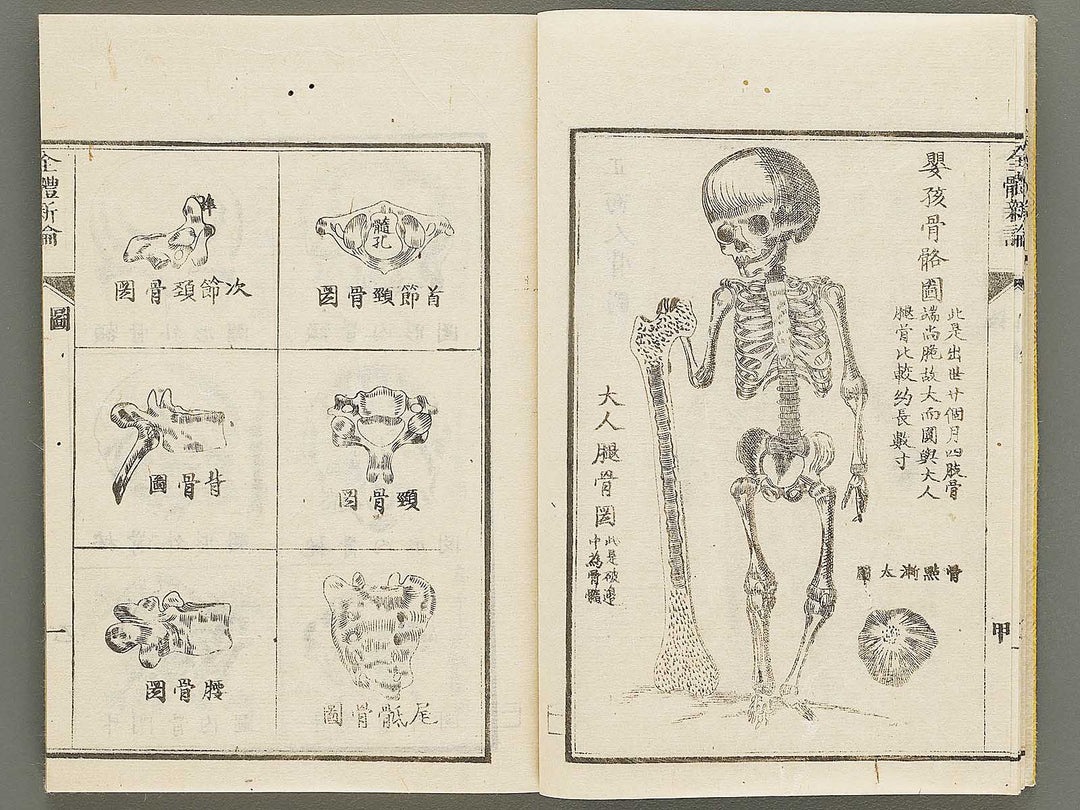 全體新論
嬰孩骨骼圖
此是出世廿個月四肢骨
端尚脆故大而圓與大人
腿骨比較約長數寸
骨點漸大圖
大人腿骨圖
此是破邊
中為骨髓
甲
全體新論
圖
一
首節頸骨圖
髓孔
次節頸骨圖
頸骨圖
背骨圖
尾骶骨圖
腰骨圖